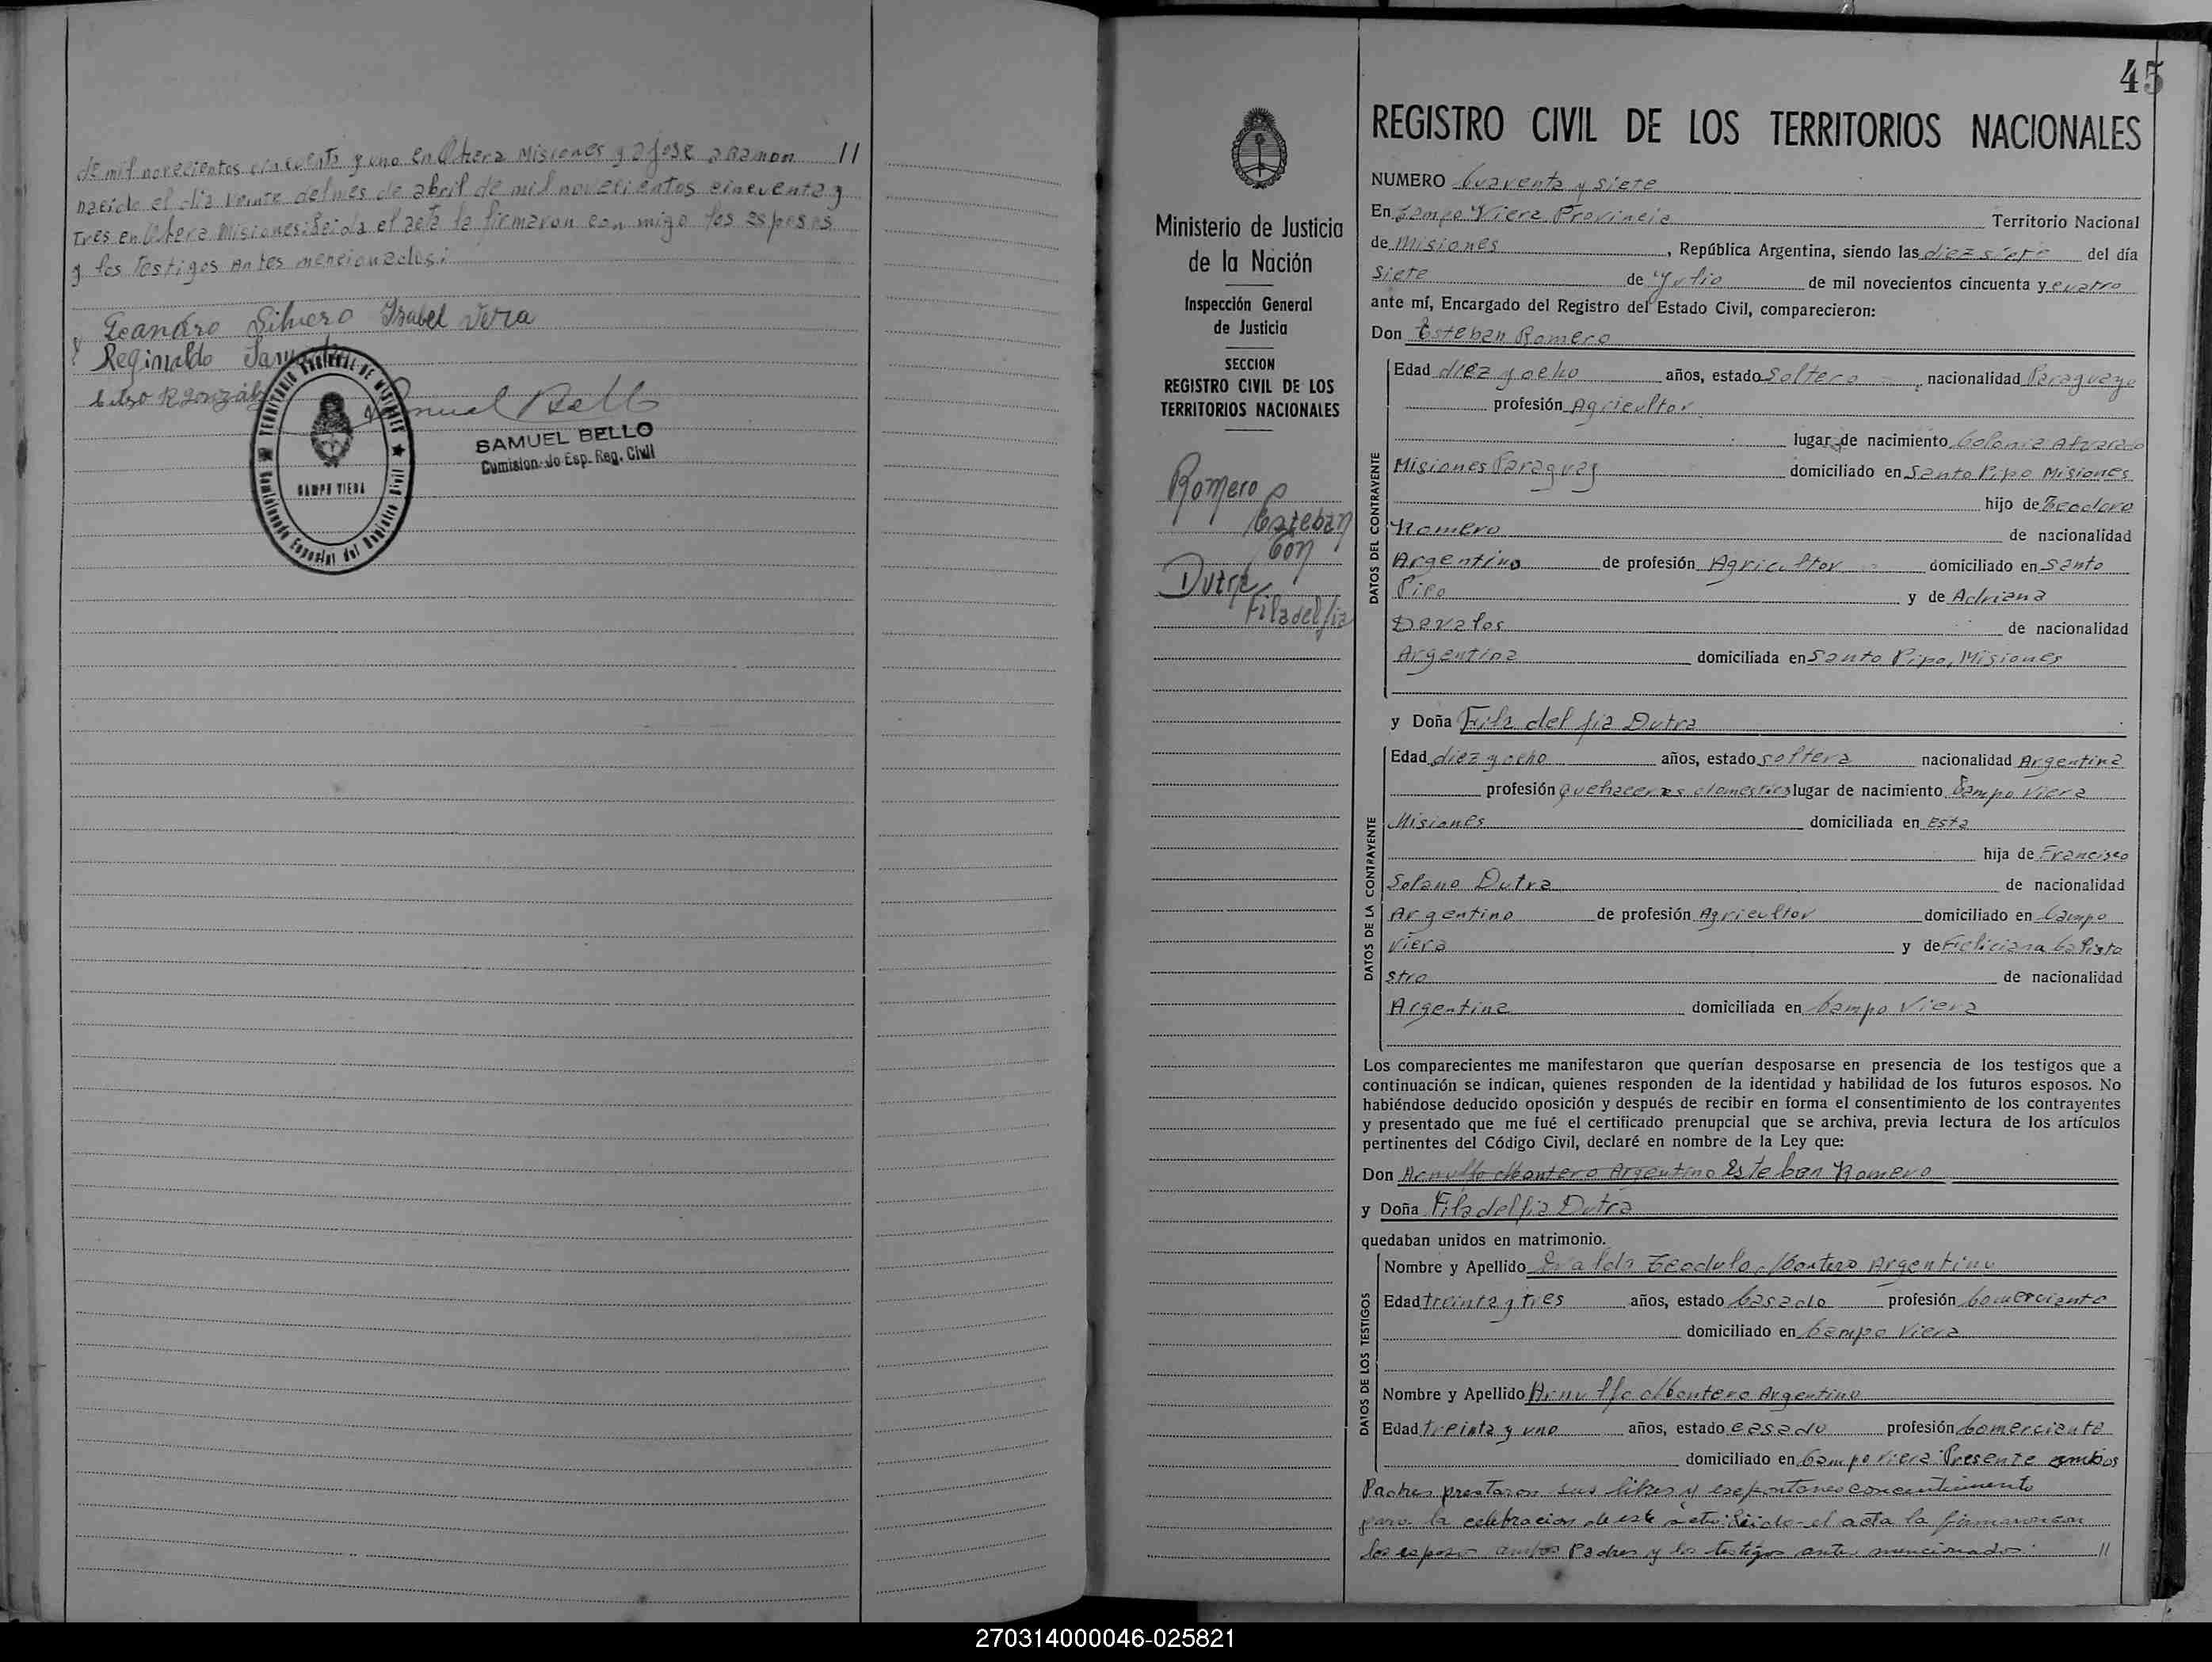 de mil novecientos cincuenta y uno en Obera Misiones y a jose aRamon 11
nacido el dia veinte del mes de abril de mil novecientos cincuenta y
tres en Obera Misiones: Leida el acta la firmaron con migo los esposos
y los Testigos Antes mencionados:
Leandro Silvero Isabel Vera
Reginaldo
Celso R González
Samuel Bello
SAMUEL BELLO
Comisionado Esp. Reg. Civil
TERRITORIO NACIONAL DE MISIONES
CAMPO VIERA
Comisionado Especial del Registro Civil
45
Ministerio de Justicia
de la Nación
Inspección General
de Justicia
SECCION
REGISTRO CIVIL DE LOS
TERRITORIOS NACIONALES
Romero
Esteban
Con
Dutra
Filadelfia
REGISTRO CIVIL DE LOS TERRITORIOS NACIONALES
NUMERO Cuarenta y siete
En Campo Viera Provincia Territorio Nacional
de Misiones, República Argentina, siendo las diez siete del día
Siete de Julio de mil novecientos cincuenta y cuatro
ante mí, Encargado del Registro del Estado Civil, comparecieron:
Don Esteban Romero
DATOS DEL CONTRAYENTE
Edad diez y ocho años, estado Soltero, nacionalidad Paraguayo
profesión Agricultor
lugar de nacimiento Colonia
Misiones Paraguay domiciliado en Santo Pipo Misiones
hijo de Teodoro
Romero de nacionalidad
Argentino de profesión Agricultor domiciliado en Santo
Pipo y de Adriana
Davalos de nacionalidad
Argentina domiciliada en Santo Pipo, Misiones
y Doña Fila del fia Dutra
DATOS DE LA CONTRAYENTE
Edad diez y ocho años, estado soltera nacionalidad Argentina
profesión Quehaceres domesticos lugar de nacimiento Campo Viera
Misiones domiciliada en Esta
hija de Francisco
Solano Dutra de nacionalidad
Argentino de profesión Agricultor domiciliado en Campo
Viera y de Feliciana
de nacionalidad
Argentina domiciliada en Campo Viera
Los comparecientes me manifestaron que querían desposarse en presencia de los testigos que a
continuación se indican, quienes responden de la identidad y habilidad de los futuros esposos. No
habiéndose deducido oposición y después de recibir en forma el consentimiento de los contrayentes
y presentado que me fué el certificado prenupcial que se archiva, previa lectura de los artículos
pertinentes del Código Civil, declaré en nombre de la Ley que:
Don Arnulfo Montero Argentino Esteban Romero
y Doña Filadelfia Dutra
quedaban unidos en matrimonio.
DATOS DE LOS TESTIGOS
Nombre y Apellido Teodulo Montero Argentino
Edad treinta y tres años, estado Casado profesión Comerciante
domiciliado en Campo Viera
Nombre y Apellido Arnulfo Montero Argentino
Edad treinta y uno años, estado casado profesión Comerciante
domiciliado en Campo Viera: Presente ambos
Padres prestaron sus libres y espontaneo concentimiento
para la celebracion de este acto: Leida el acta la firmaron con
los esposos ambos Padres y los testigos antes mencionados: 11
270314000046-025821